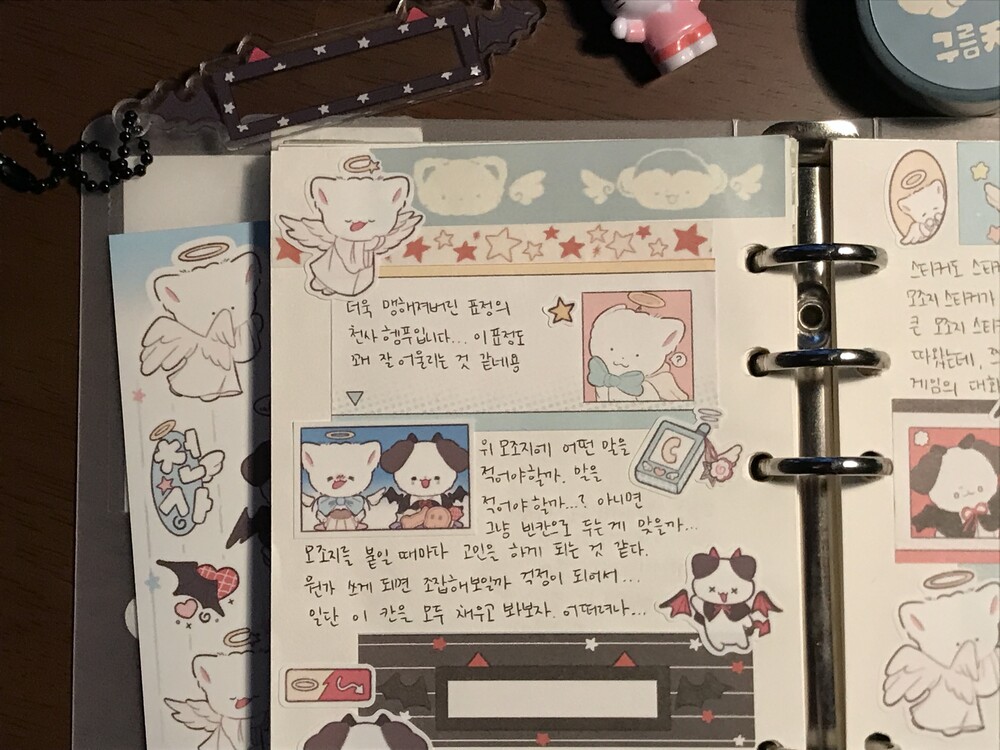 구름
더욱 맹해져버린 표정의
천사 햄푸입니다... 이 표정도
꽤 잘 어울리는 것 같네용
?
위 모조지에 어떤 말을
적어야할까. 말을
적어야 할까...? 아니면
그냥 빈칸으로 두는게 맞을까...
모조지를 붙일 때마다 고민을 하게 되는 것 같다.
뭔가 쓰게 되면 조잡해보일까 걱정이 되어서...
일단 이 칸을 모두 채우고 봐보자. 어떠려나...
스티커도
모조지 스티커가
큰 모조지
따왔는데,
게임의 대화